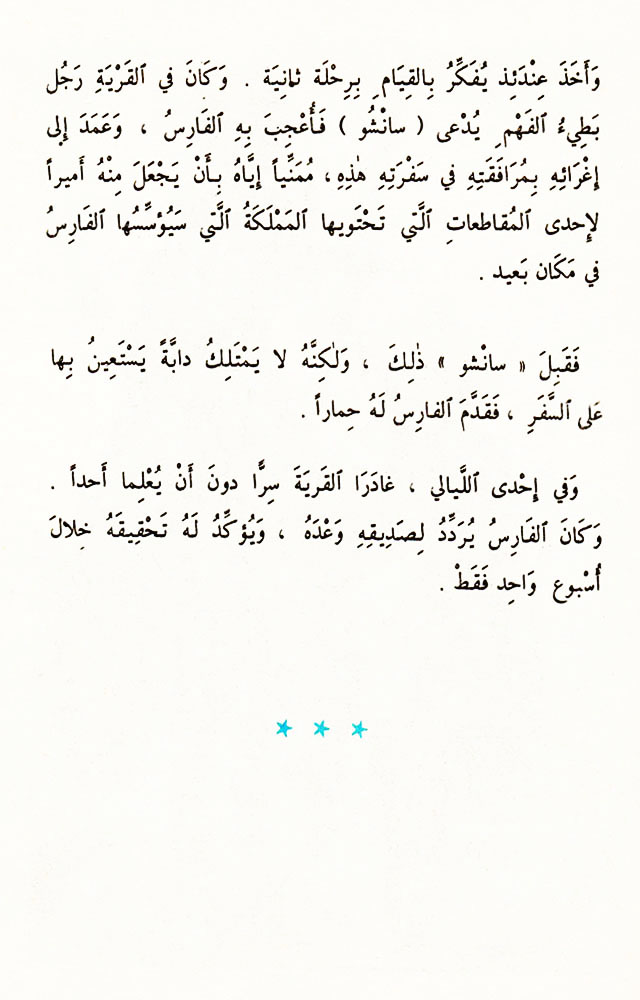 وَأَخَذَ عِنْدَئِذ يُفَكِّرُ بِالقِيَامِ بِرِحْلَة ثانِيَة . وَكَانَ في ٱلقَرْيَةِ رَجُل
بَطِيءُ ٱلفَهْمِ يُدْعى ( سانْشُو ) فَأُعْجِبَ بِهِ ٱلفَارِسُ ، وَعَمَدَ إِلى
إِغْرَائِهِ بِمُرَافَقَتِهِ في سَفْرَتِهِ هٰذِهِ، مُمَنِّياً إِيَّاهُ بِأَنْ يَجْعَلَ مِنْهُ أَميراً
لإِحدى ٱلمُقاطعاتِ ٱلَّتي تَحْتَويها ٱلمَمْلَكَةُ ٱلَّتي سَيُؤَسِّسُها ٱلفَارِسُ
في مَكَان بَعيد .
فَقَبِلَ « سانْشو » ذٰلِكَ ، وَلٰكِنَّهُ لا يَمْتَلِكُ دابَّةً يَسْتَعِينُ بِها
عَلى ٱلسَّفَرِ ، فَقَدَّمَ ٱلفارِسُ لَهُ حِماراً .
وَفي إِحْدى ٱللَّيالي ، غادَرَا ٱلقَريَةَ سِرًّا دونَ أَنْ يُعْلِما أَحداً .
وَكَانَ ٱلفَارِسُ يُرَدِّدُ لِصَدِيقِهِ وَعْدَهُ ، وَيُؤكِّدُ لَهُ تَحْقِيقَهُ خِلالَ
أُسْبوع وَاحِد فَقَطْ .